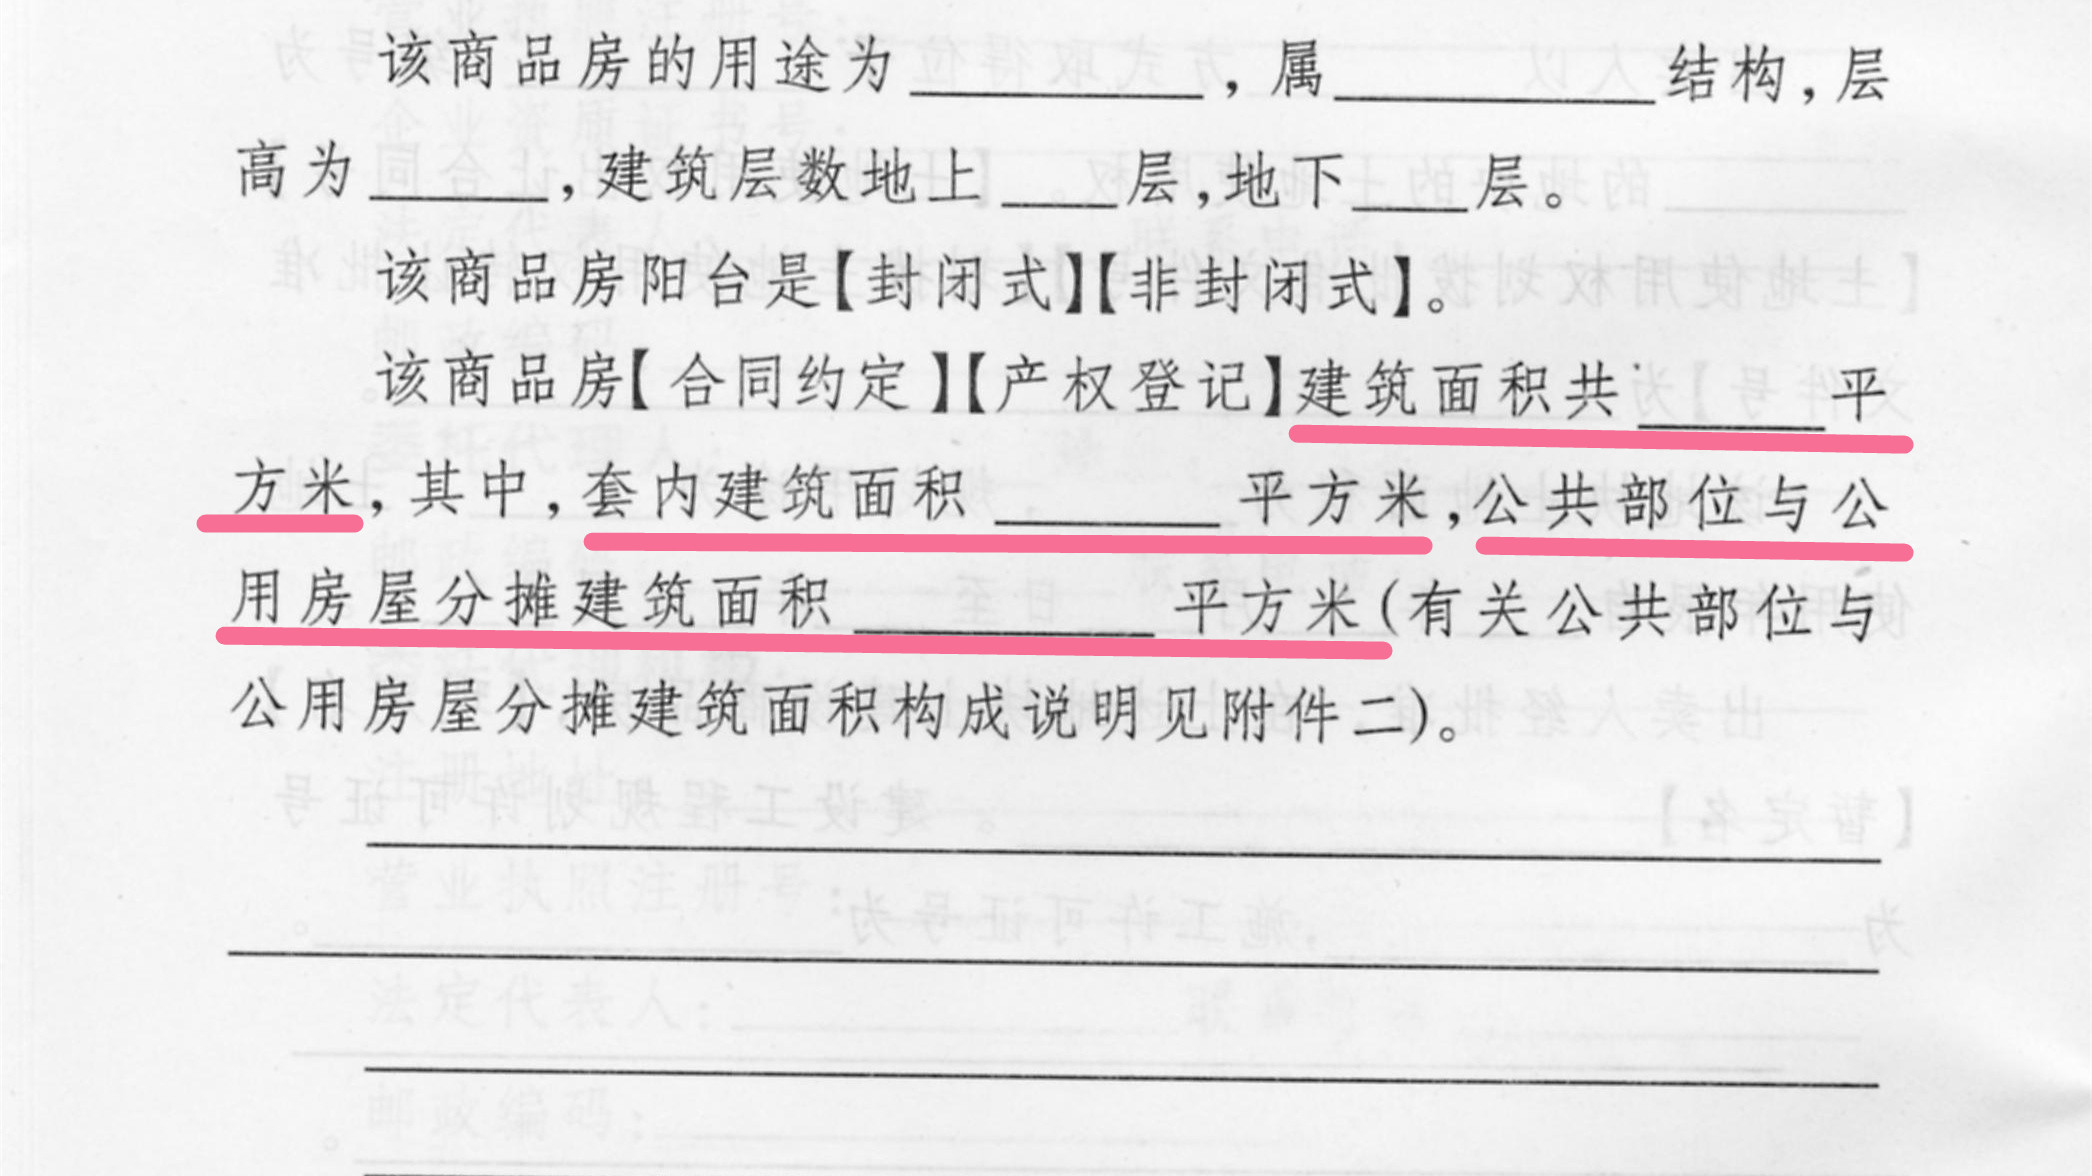 该商品房的用途为________，属________结构，层
高为______，建筑层数地上____层，地下____层。
该商品房阳台是【封闭式】【非封闭式】。
该商品房【合同约定】【产权登记】建筑面积共______平
方米，其中，套内建筑面积________平方米，公共部位与公
用房屋分摊建筑面积__________平方米(有关公共部位与
公用房屋分摊建筑面积构成说明见附件二)。